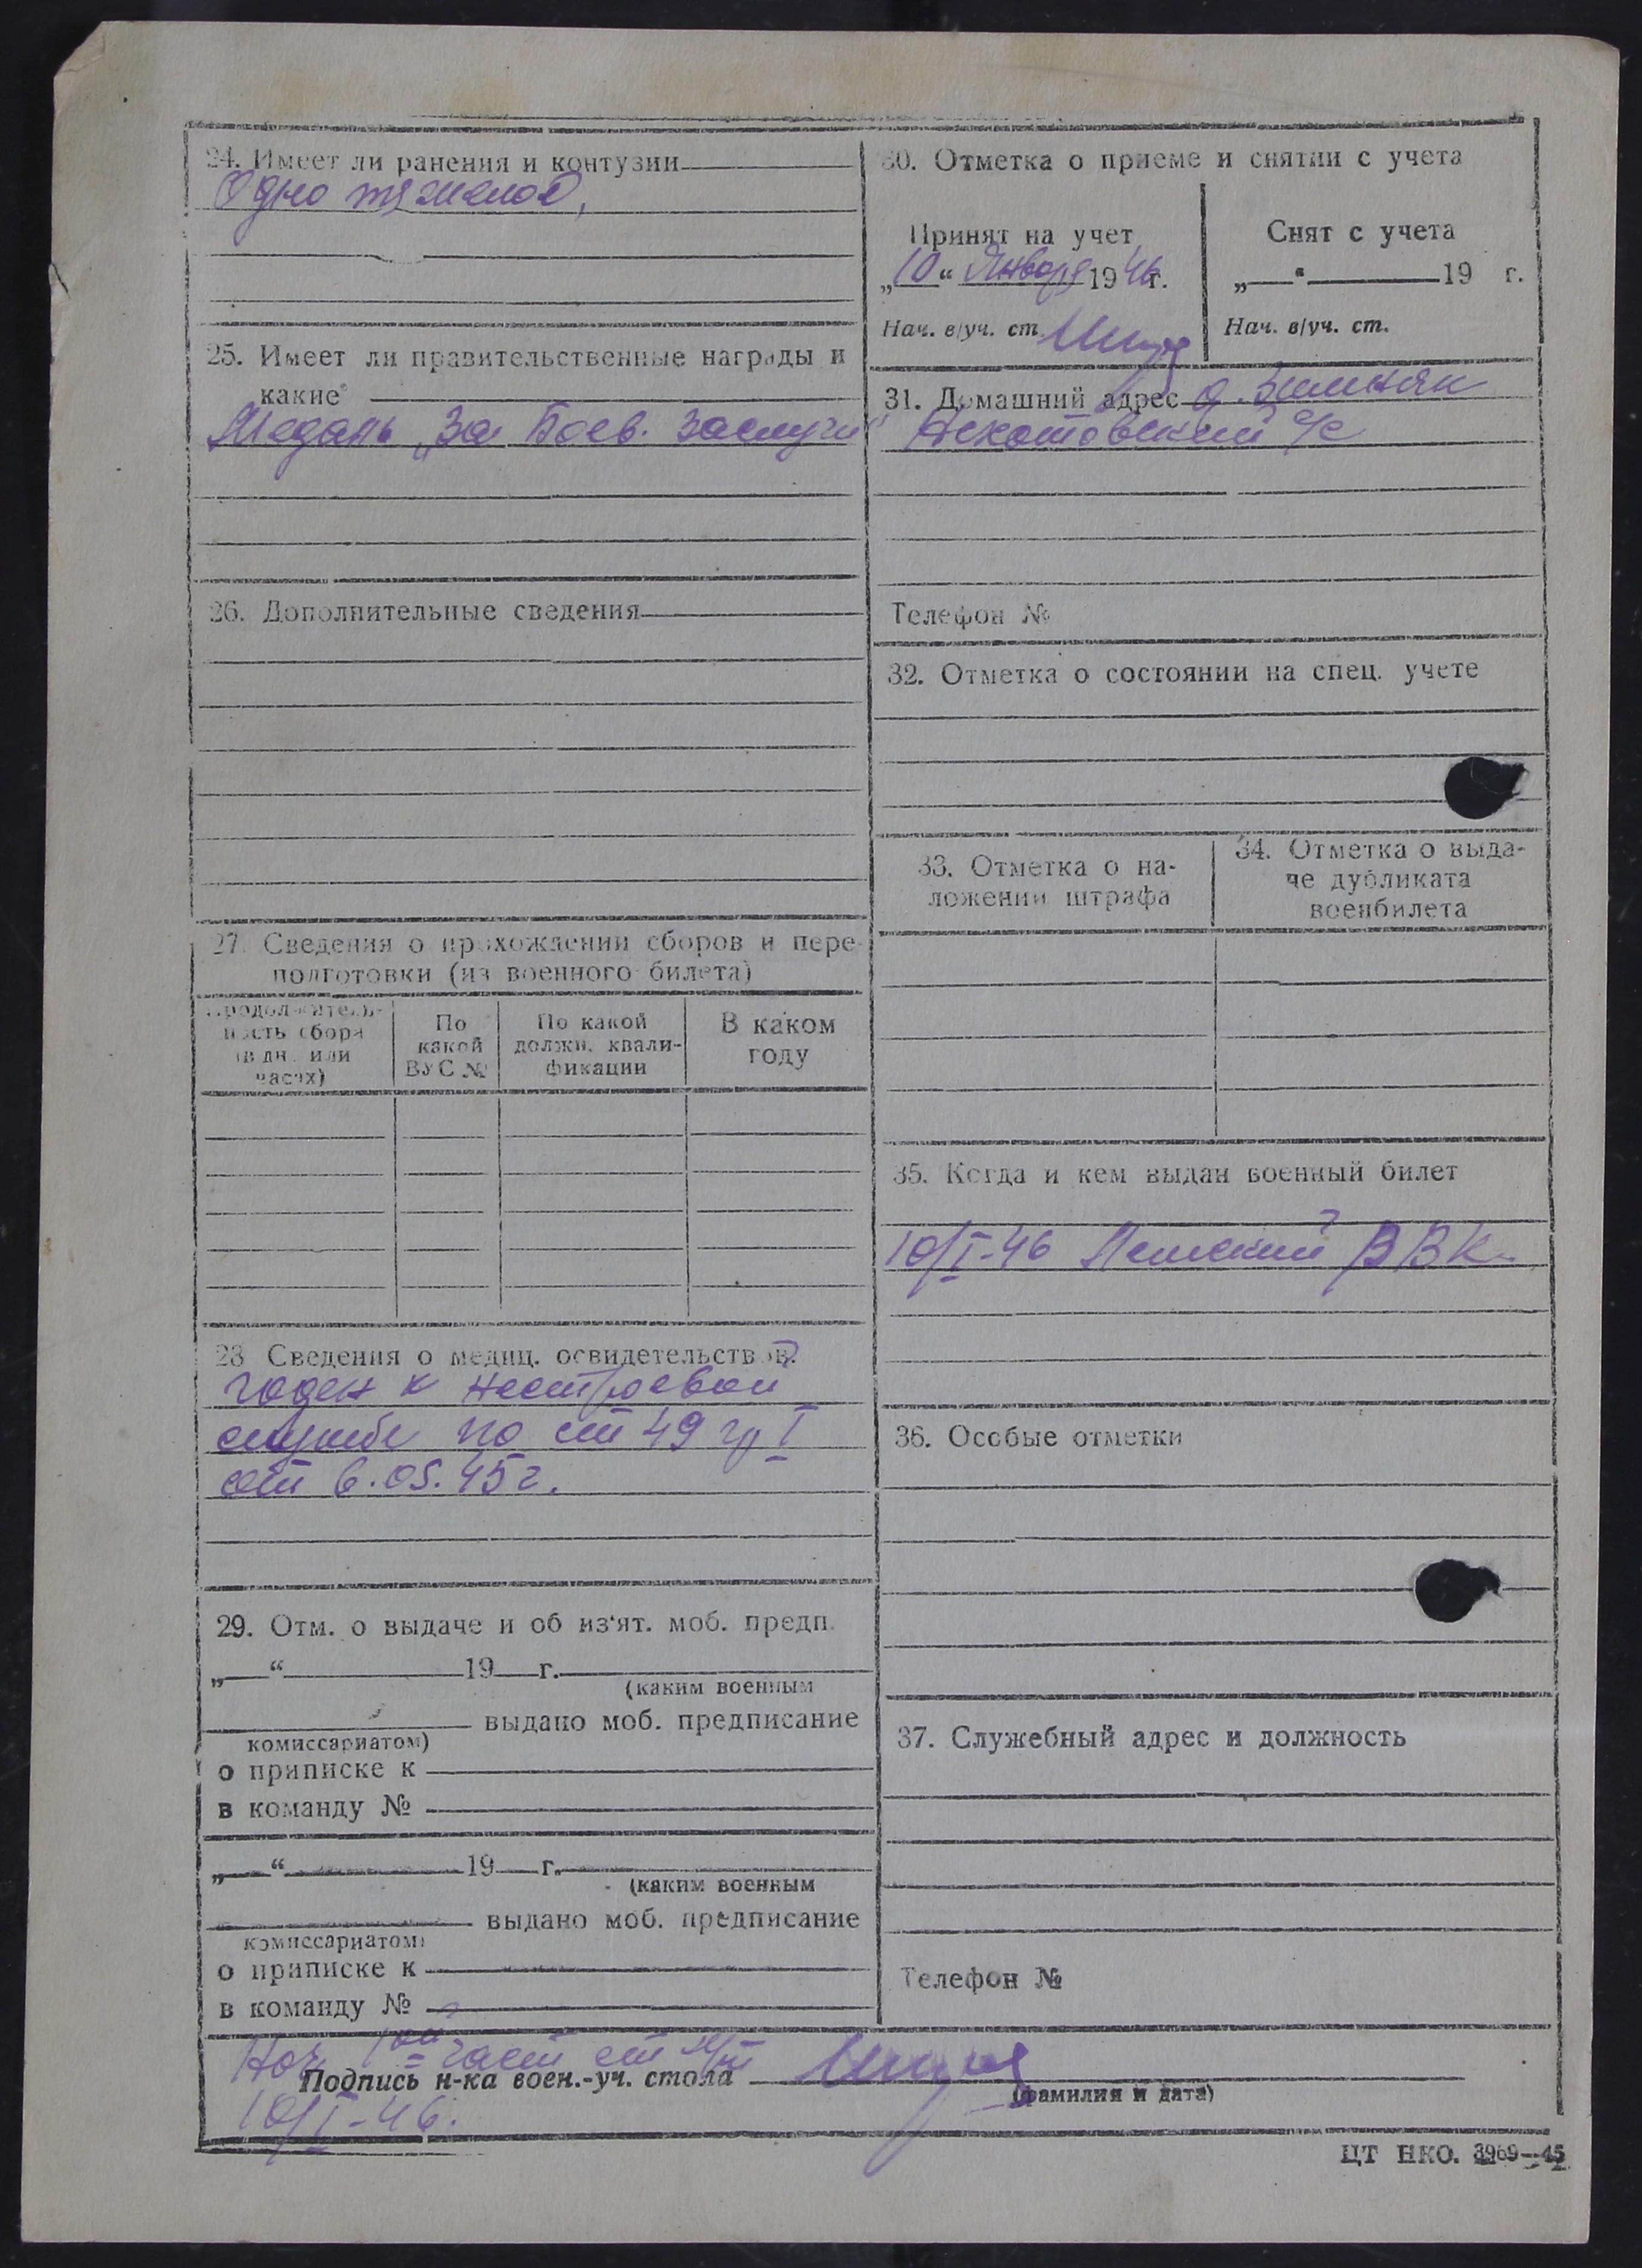 24. Имеет ли ранения и контузии
Одно тяжелое,
25. Имеет ли правительственные награды и
какие
Медаль „За Боев. заслуги"
26. Дополнительные сведения
27. Сведения о прохождении сборов и пере-
подготовки (из военного билета)
Продолжитель-
ность сбора
(в дн. или
часах)
По
какой
ВУС №
По какой
должн. квали-
фикации
В каком
году
28 Сведения о медиц. освидетельствов.
годен к нестроевой
службе по ст 49 гр I
от 6.05.45 г.
29. Отм. о выдаче и об из'ят. моб. предп.
„ “ 19 г.
(каким военным
выдано моб. предписание
комиссариатом)
о приписке к
в команду №
„ “ 19 г.
(каким военным
выдано моб. предписание
комиссариатом)
о приписке к
в команду №
30. Отметка о приеме и снятии с учета
Принят на учет
„10“ Января 1946 г.
Нач. в/уч. ст.
Снят с учета
„ “ 19 г.
Нач. в/уч. ст.
31. Домашний адрес д. Зимняк
с/с
Телефон №
32. Отметка о состоянии на спец. учете
33. Отметка о на-
ложении штрафа
34. Отметка о выда-
че дубликата
военбилета
35. Когда и кем выдан военный билет
10/I-46 РВК
36. Особые отметки
37. Служебный адрес и должность
Телефон №
Нач. 1ой части
Подпись н-ка воен.-уч. стола
(фамилия и дата)
10/I-46.
ЦТ НКО. 3969—45